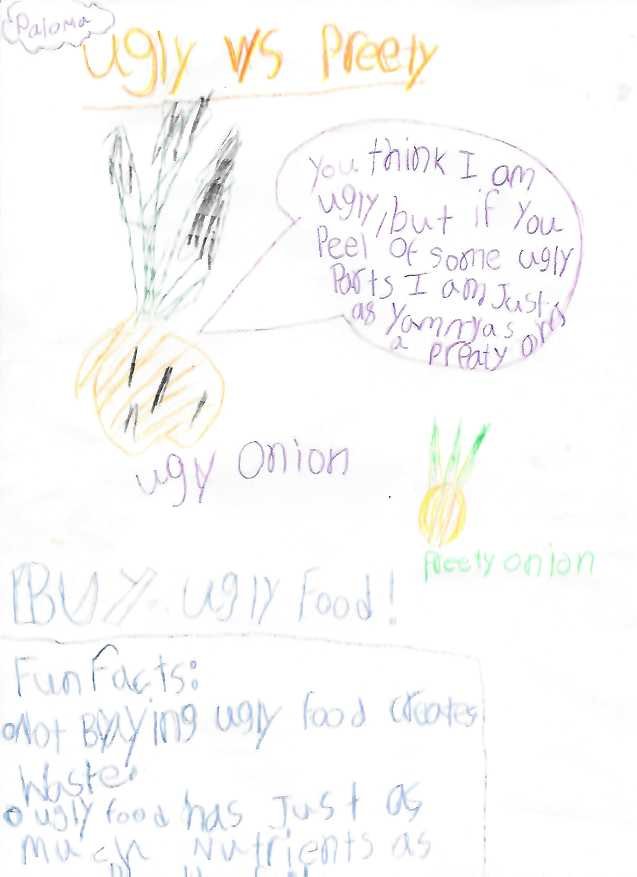 Paloma
Ugly vs Preety
You think I am
ugly, but if you
Peel of some ugly
Parts I am Just
as yammy as
a preaty
ugly onion
Preety onion
BUY ugly food!
Fun Facts:
Not Byying ugly food creates
Waste.
ugly food has Just as
much Nutrients as